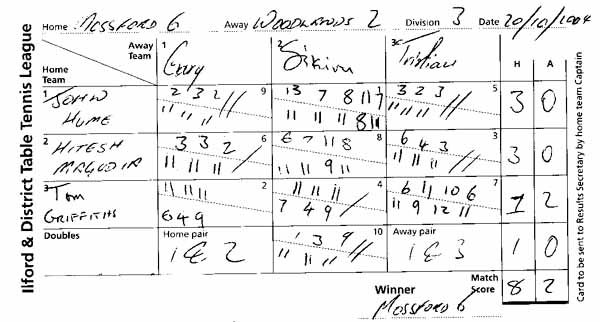 Ilford & District Table Tennis League
Home MOSSFORD 6 Away WOODLANDS 2 Division 3 Date 20/10/2004
Away Team 1 Gary 2 3
Home Team H A
1 JOHN HUME 2 3 2 / 9 13 7 8 11 7 1 3 2 3 / 5 3 0
11 11 11 11 11 11 8 11 11 11 11
2 HITESH 3 3 2 / 6 6 7 11 8 8 6 4 3 / 3 3 0
11 11 11 11 11 9 11 11 11 11
3 Tom GRIFFITHS 11 11 11 2 11 11 11 4 6 11 10 6 7 1 2
6 4 9 7 4 9 / 11 9 12 11
Doubles Home pair 1 & 2 1 3 9 10 Away pair 1 & 3 1 0
11 11 11
Winner Match Score 8 2
MOSSFORD 6
Card to be sent to Results Secretary by home team Captain